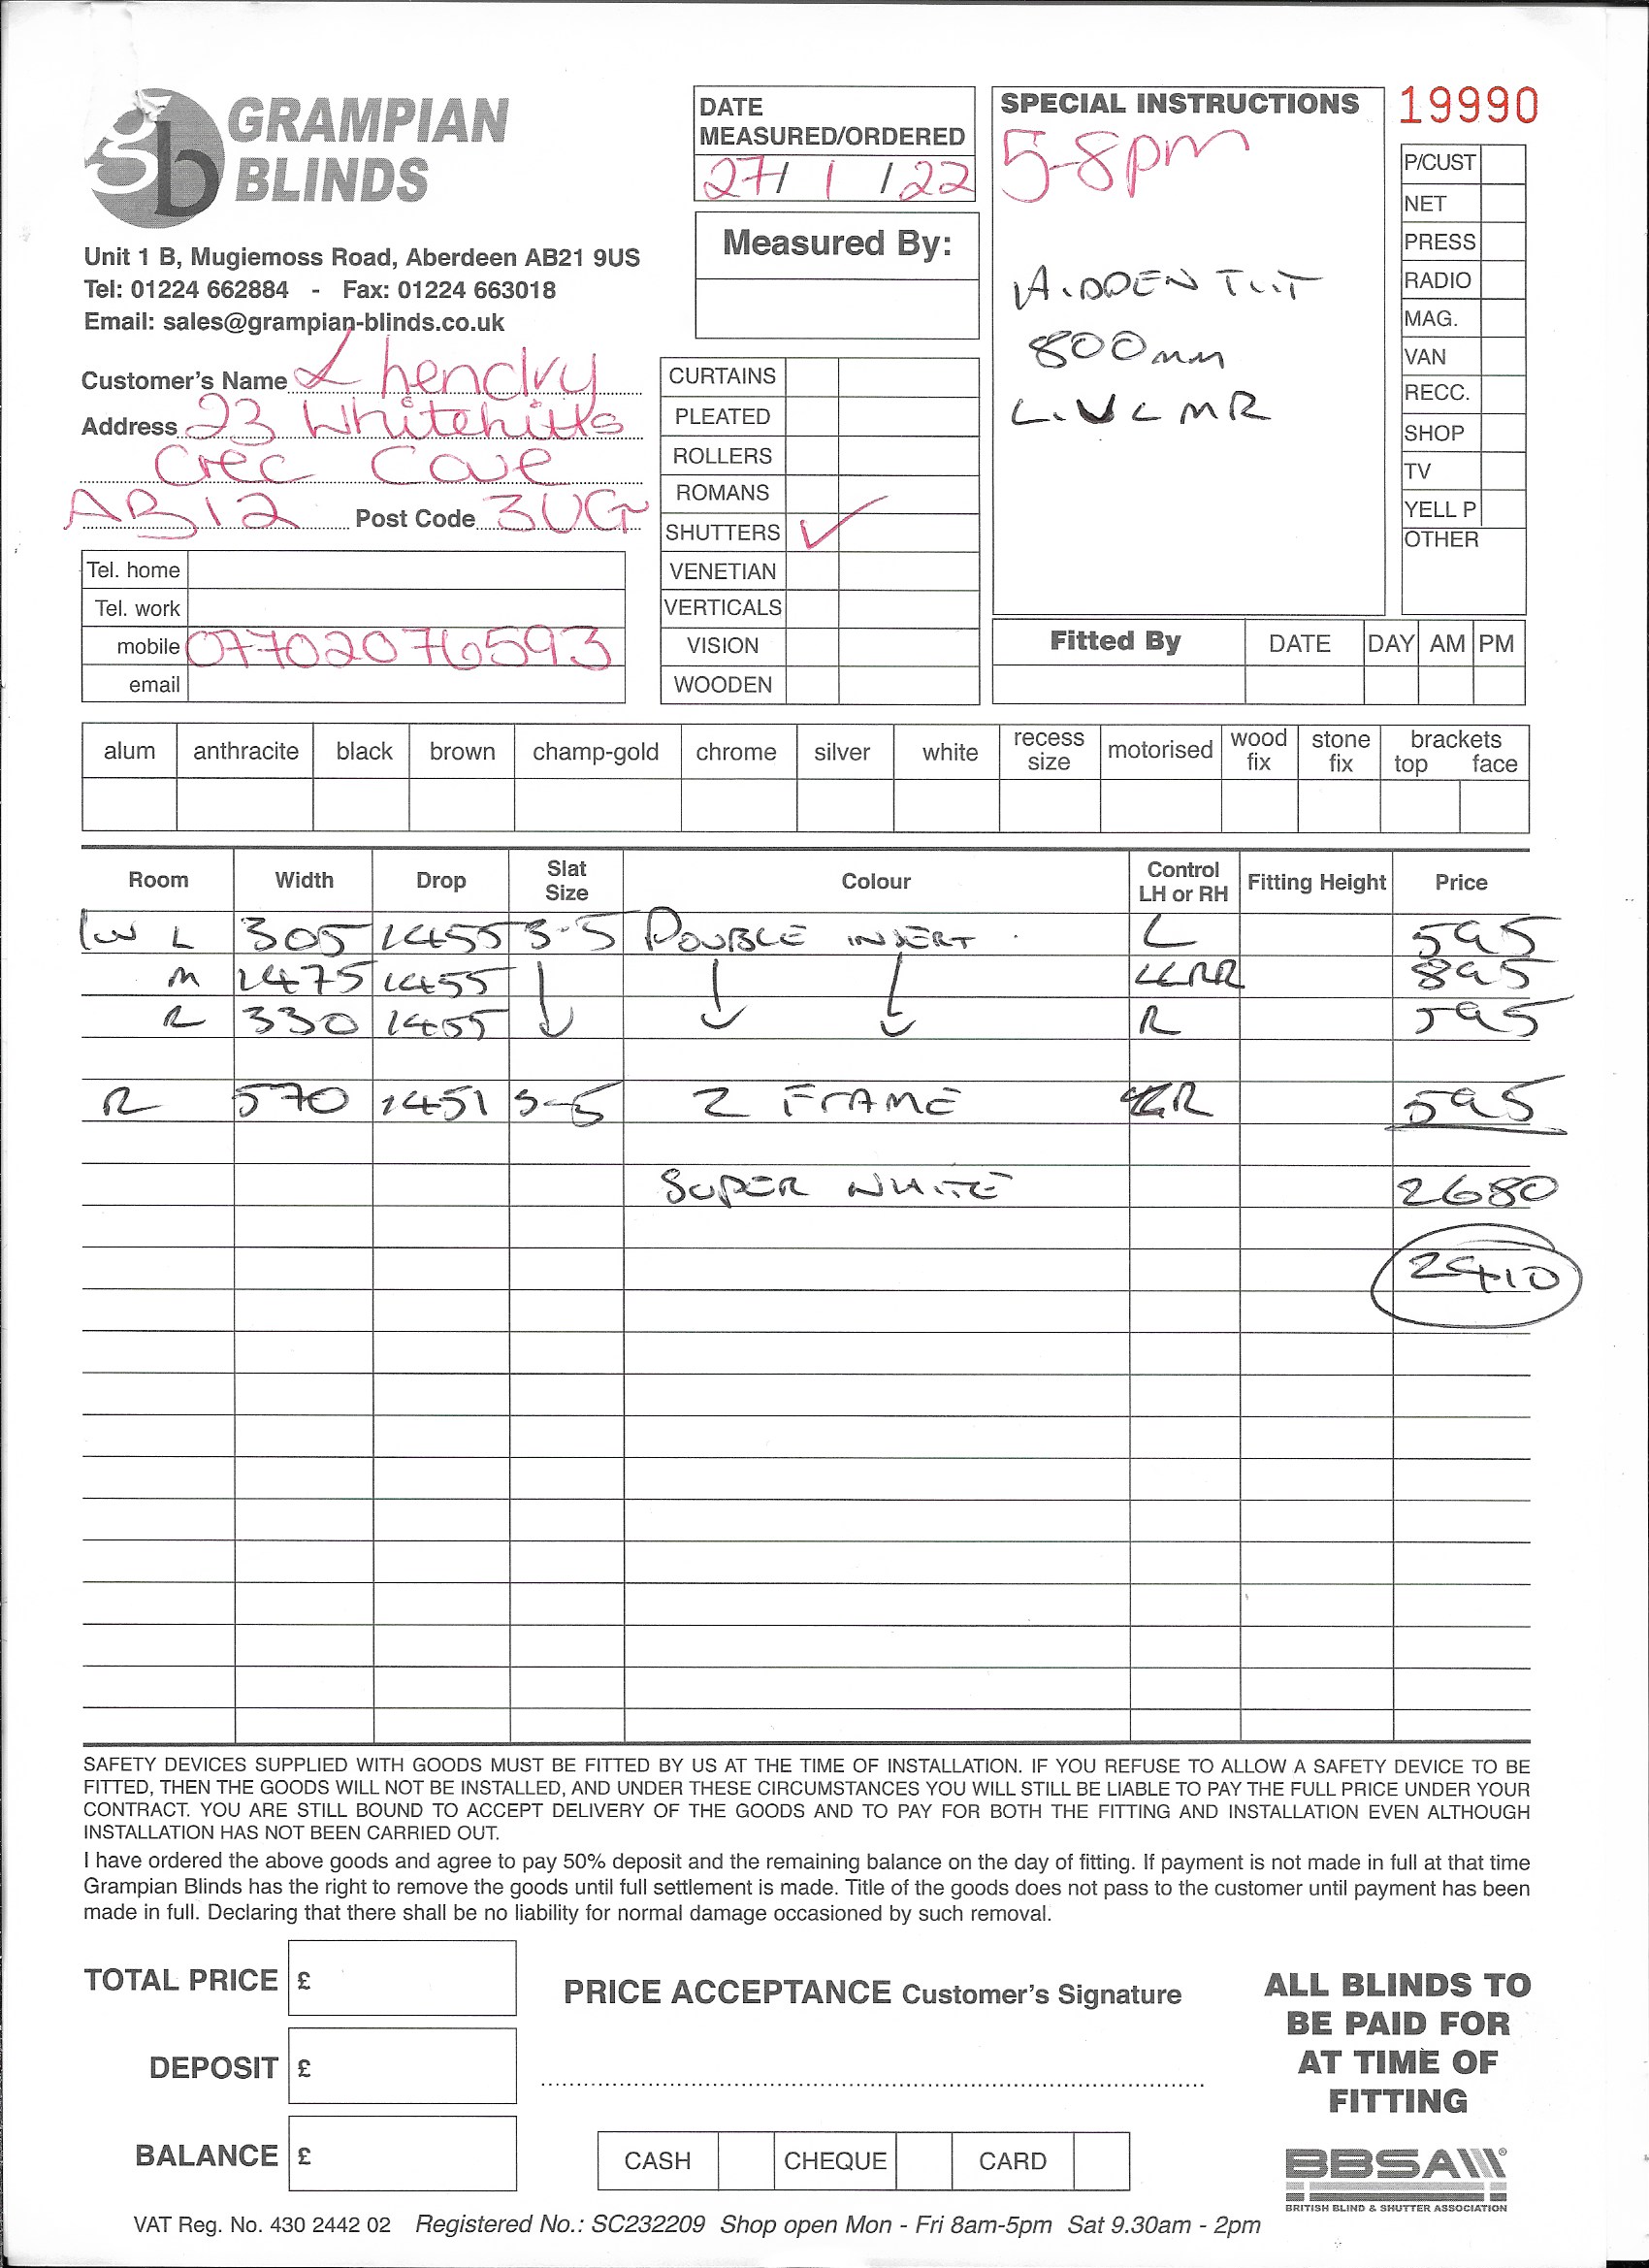 GRAMPIAN
BLINDS
Unit 1 B, Mugiemoss Road, Aberdeen AB21 9US
Tel: 01224 662884 - Fax: 01224 663018
Email: sales@grampian-blinds.co.uk
Customer's Name L hendry
Address 23 Whitehills
Cres Cove
AB12 Post Code 3UG
Tel. home
Tel. work
mobile 07702076593
email
DATE
MEASURED/ORDERED
27/ 1 /22
Measured By:
CURTAINS
PLEATED
ROLLERS
ROMANS
SHUTTERS ✓
VENETIAN
VERTICALS
VISION
WOODEN
SPECIAL INSTRUCTIONS
5-8pm
HIDDEN TILT
800mm
L.V L MR
19990
P/CUST
NET
PRESS
RADIO
MAG.
VAN
RECC.
SHOP
TV
YELL P
OTHER
Fitted By DATE DAY AM PM
alum anthracite black brown champ-gold chrome silver white recess size motorised wood fix stone fix brackets top face
Room Width Drop Slat Size Colour Control LH or RH Fitting Height Price
L 305 1455 3-5 DOUBLE INSERT L 595
M 1475 1455 LLRR 895
R 330 1455 R 595
R 570 1451 3-5 Z FRAME R 595
SUPER WHITE 2680
2410
SAFETY DEVICES SUPPLIED WITH GOODS MUST BE FITTED BY US AT THE TIME OF INSTALLATION. IF YOU REFUSE TO ALLOW A SAFETY DEVICE TO BE
FITTED, THEN THE GOODS WILL NOT BE INSTALLED, AND UNDER THESE CIRCUMSTANCES YOU WILL STILL BE LIABLE TO PAY THE FULL PRICE UNDER YOUR
CONTRACT. YOU ARE STILL BOUND TO ACCEPT DELIVERY OF THE GOODS AND TO PAY FOR BOTH THE FITTING AND INSTALLATION EVEN ALTHOUGH
INSTALLATION HAS NOT BEEN CARRIED OUT.
I have ordered the above goods and agree to pay 50% deposit and the remaining balance on the day of fitting. If payment is not made in full at that time
Grampian Blinds has the right to remove the goods until full settlement is made. Title of the goods does not pass to the customer until payment has been
made in full. Declaring that there shall be no liability for normal damage occasioned by such removal.
TOTAL PRICE £
DEPOSIT £
BALANCE £
PRICE ACCEPTANCE Customer's Signature
CASH CHEQUE CARD
ALL BLINDS TO
BE PAID FOR
AT TIME OF
FITTING
BBSA®
BRITISH BLIND & SHUTTER ASSOCIATION
VAT Reg. No. 430 2442 02 Registered No.: SC232209 Shop open Mon - Fri 8am-5pm Sat 9.30am - 2pm